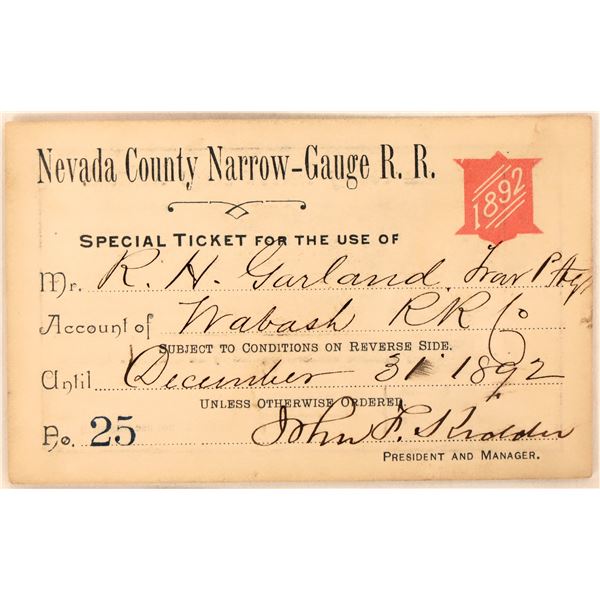 Nevada County Narrow-Gauge R. R.
1892
SPECIAL TICKET FOR THE USE OF
Mr. R. H. Garland, Trav P. Agt
Account of Wabash RR Co
SUBJECT TO CONDITIONS ON REVERSE SIDE.
Until December 31 1892
UNLESS OTHERWISE ORDERED.
No. 25 John F. Kidder
PRESIDENT AND MANAGER.